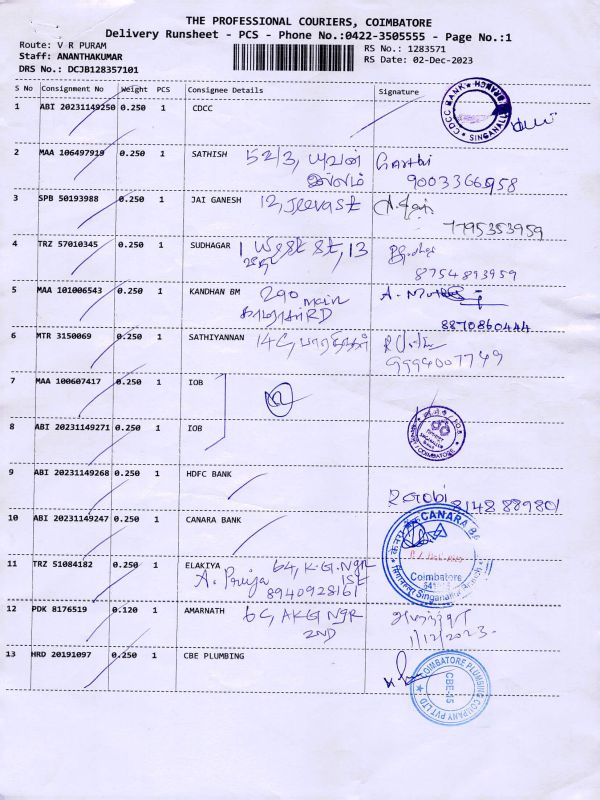 THE PROFESSIONAL COURIERS, COIMBATORE
Delivery Runsheet - PCS - Phone No.:0422-3505555 - Page No.:1
Route: V R PURAM
RS No.: 1283571
Staff: ANANTHAKUMAR
RS Date: 02-Dec-2023
DRS No.: DCJB128357101
S No Consignment No Weight PCS Consignee Details Signature
1 ABI 20231149250 0.250 1 CDCC
CDCC BANK BRANCH SINGANALL
2 MAA 106497919 0.250 1 SATHISH 52/3,
இல்லம்
9003366958
3 SPB 50193988 0.250 1 JAI GANESH 12, Jeeva st
7795353959
4 TRZ 57010345 0.250 1 SUDHAGAR 1 West St, 13
8754893959
5 MAA 101006543 0.250 1 KANDHAN BM 290 main
RD
8870860444
6 MTR 3150069 0.250 1 SATHIYANNAN 14 C,
9994007749
7 MAA 100607417 0.250 1 IOB
8 ABI 20231149271 0.250 1 IOB
COIMBATORE
9 ABI 20231149268 0.250 1 HDFC BANK
R Gobi 8148889801
10 ABI 20231149247 0.250 1 CANARA BANK
CANARA
Coimbatore
11 TRZ 51084182 0.250 1 ELAKIYA 64, K.G. Ngr
A. Priya 1St
8940928161
12 PDK 8176519 0.120 1 AMARNATH 6C, AKG NgR
2ND
1/12/2023.
13 HRD 20191097 0.250 1 CBE PLUMBING
COIMBATORE PLUMBING COMPANY PVT LTD
CBE-15